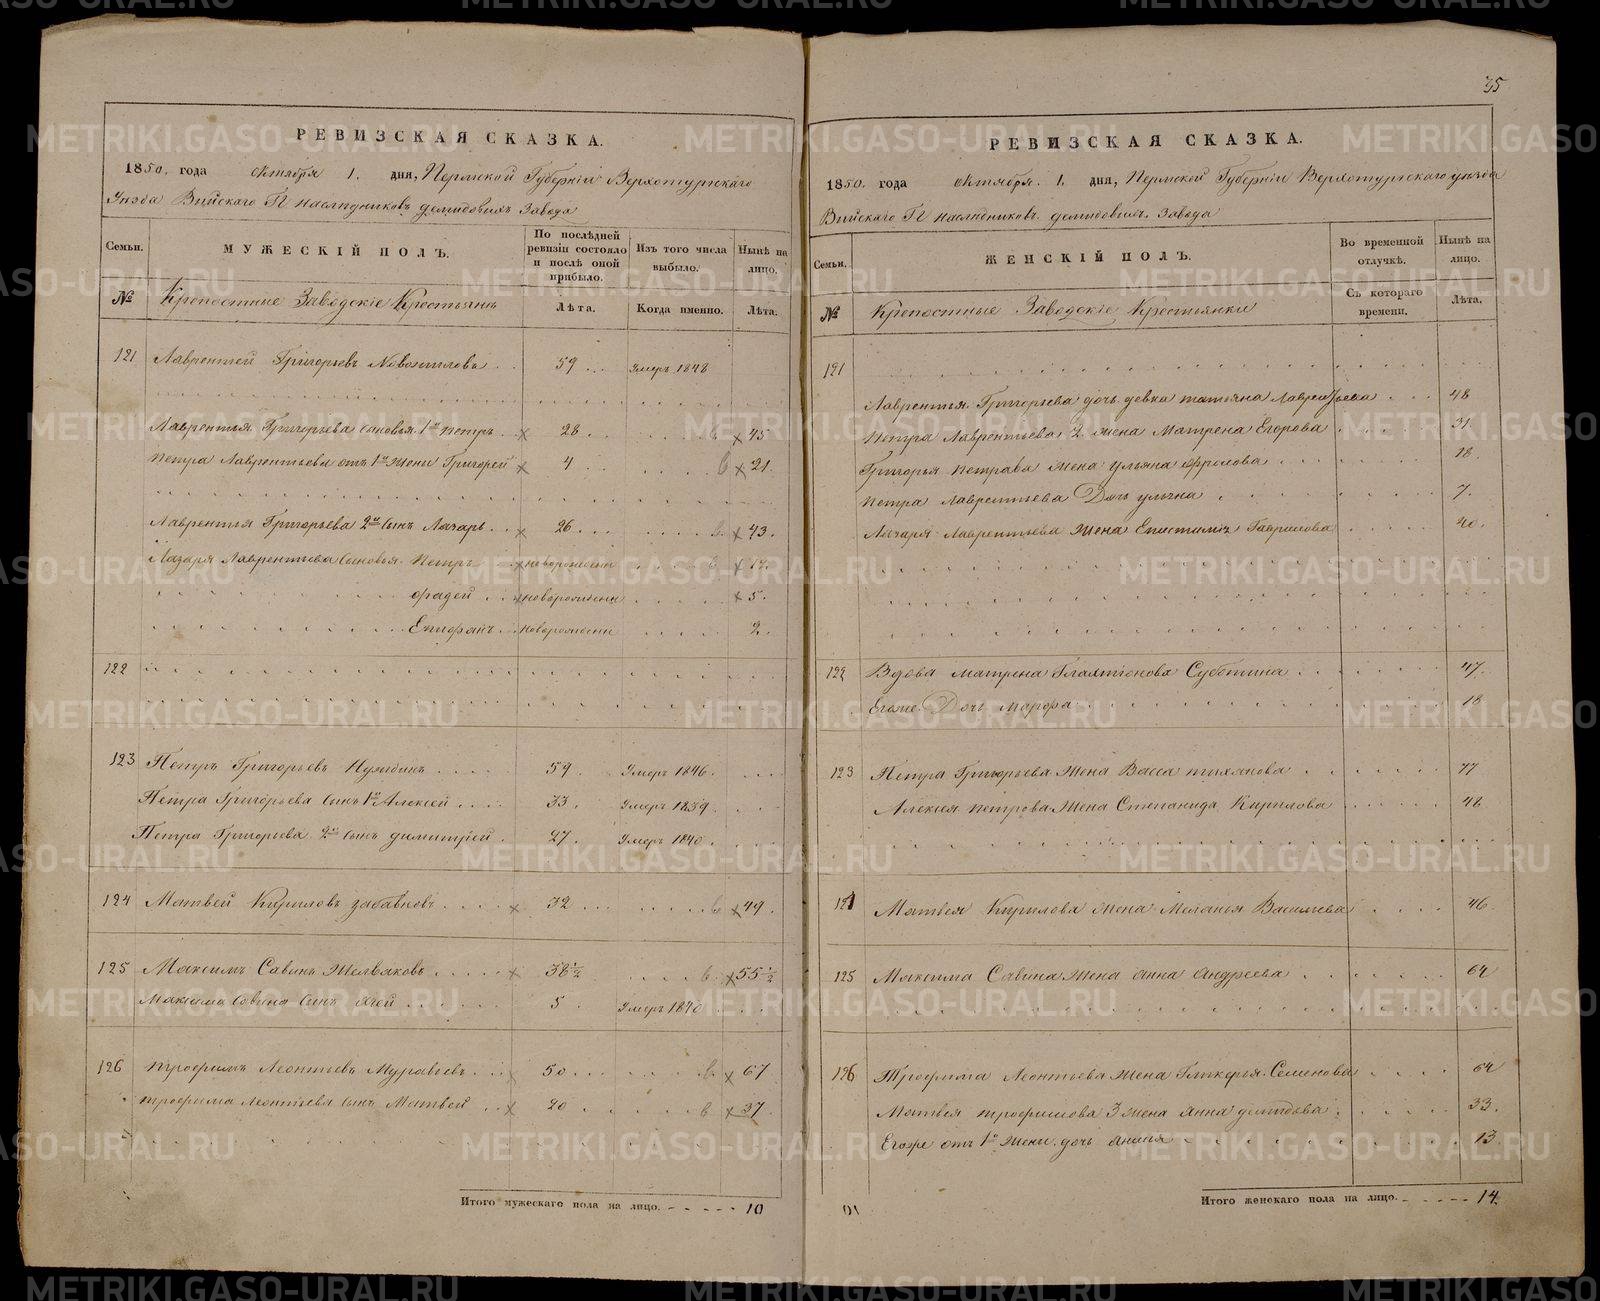 35
РЕВИЗСКАЯ СКАЗКА.
1850. года октября 1. дня, Пермской Губерніи Верхотурскаго
Уезда Выйскаго Г наслѣдниковъ демидовыхъ Завода
Семьи. МУЖЕСКІЙ ПОЛЪ. По послѣдней ревизіи состояло и послѣ оной прибыло. Изъ того числа выбыло. Нынѣ на лицо.
№ Крепостные Заводскіе Крестьяне Лѣта. Когда именно. Лѣта.
121 Лаврентей Григорьевъ Новожиловъ 59 Умеръ 1848
Лаврентья Григорьева сыновья 1й Петръ 28 45
Петра Лаврентьева отъ 1й жены Григорей 4 21.
Лаврентья Григорьева 2й сынъ Лазарь 26 43.
Лазаря Лаврентьева сыновья Петръ новорожденн
фадей новорожденн 5.
Епифанъ новорожденн 2.
122
123 Петръ Григорьевъ 59 Умеръ 1846.
Петра Григорьева сынъ 1й Алексей 33. Умеръ 1839.
Петра Григорьева 2й сынъ димитрей 27. Умеръ 1840.
124 Матвей Кириловъ забавновъ 32 49.
125 Максимъ Савинъ Желваковъ 38½ 55½
Максима Савина сынъ 5 Умеръ 1840
126 трофимъ Леонтьевъ Муравьевъ 50 67
трофима Леонтьева сынъ Матвей 20 37.
Итого мужескаго пола на лицо. 10
РЕВИЗСКАЯ СКАЗКА.
1850. года октября. 1. дня, Пермской Губерніи Верхотурскаго уезда
Выйскаго Г наслѣдниковъ демидовыхъ. Завода
Семьи. ЖЕНСКІЙ ПОЛЪ. Во временной отлучкѣ. Нынѣ на лицо.
№ Крепостные Заводскіе Крестьянки Съ котораго времени. Лѣта.
121
Лаврентья Григорьева дочь девка татьяна Лаврентьева 48
Петра Лаврентьева 2 жена Матрена Егорова 31
Григорья Петрова жена ульяна фролова 18
Петра Лаврентьева Дочь 7.
Лазаря Лаврентьева жена Епистимія Гаврилова 40.
122 Вдова матрена Субботина 47.
Еяже Дочь марфа 18
123 Петра Григорьева жена Васса 77
Алексея петрова жена Степанида Кирилова 48
124 Матвея Кирилова жена Меланья Васильева 46
125 Максима Савина жена анна андреева 64
126 Трофима Леонтьева жена Гликерья Семенова 64
Матвея трофимова 3 жена анна демидова 33.
Егоже отъ 1й жены дочь 13
Итого женскаго пола на лицо. 14
METRIKI.GASO-URAL.RU